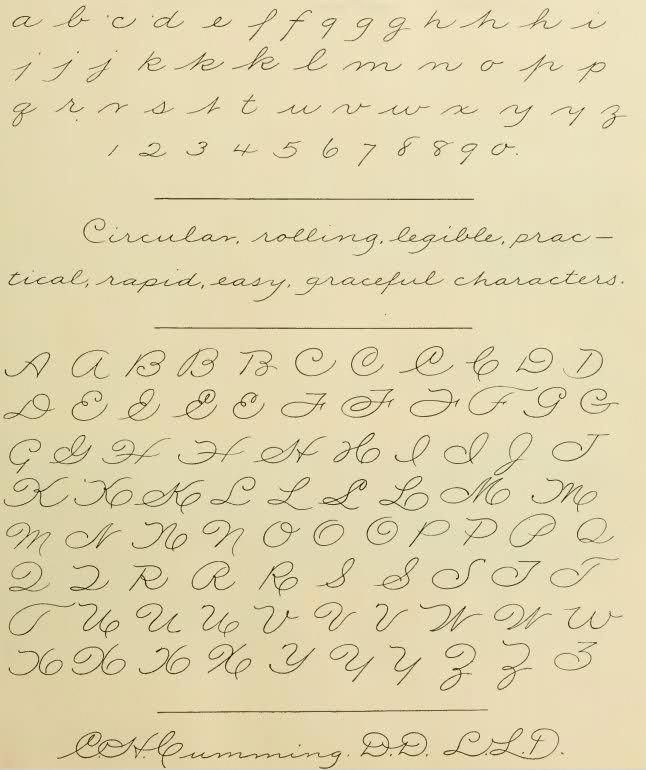 a b c d e f f g g g h h h i
j j j k k k l m n o p p
q r r s s t u v w x y y z
1 2 3 4 5 6 7 8 8 9 0.
Circular, rolling, legible, prac-
tical, rapid, easy, graceful characters.
A A B B B C C C C D D
D E E E E F F F F G G
G G H H H H I I J J
K K K L L L L M M
M N N N O O O P P P Q
Q Q R R R S S S T T
T U U U V V V W W W
X X X X Y Y Y Z Z Z
C.H. Cumming. D.D. L.L.D.